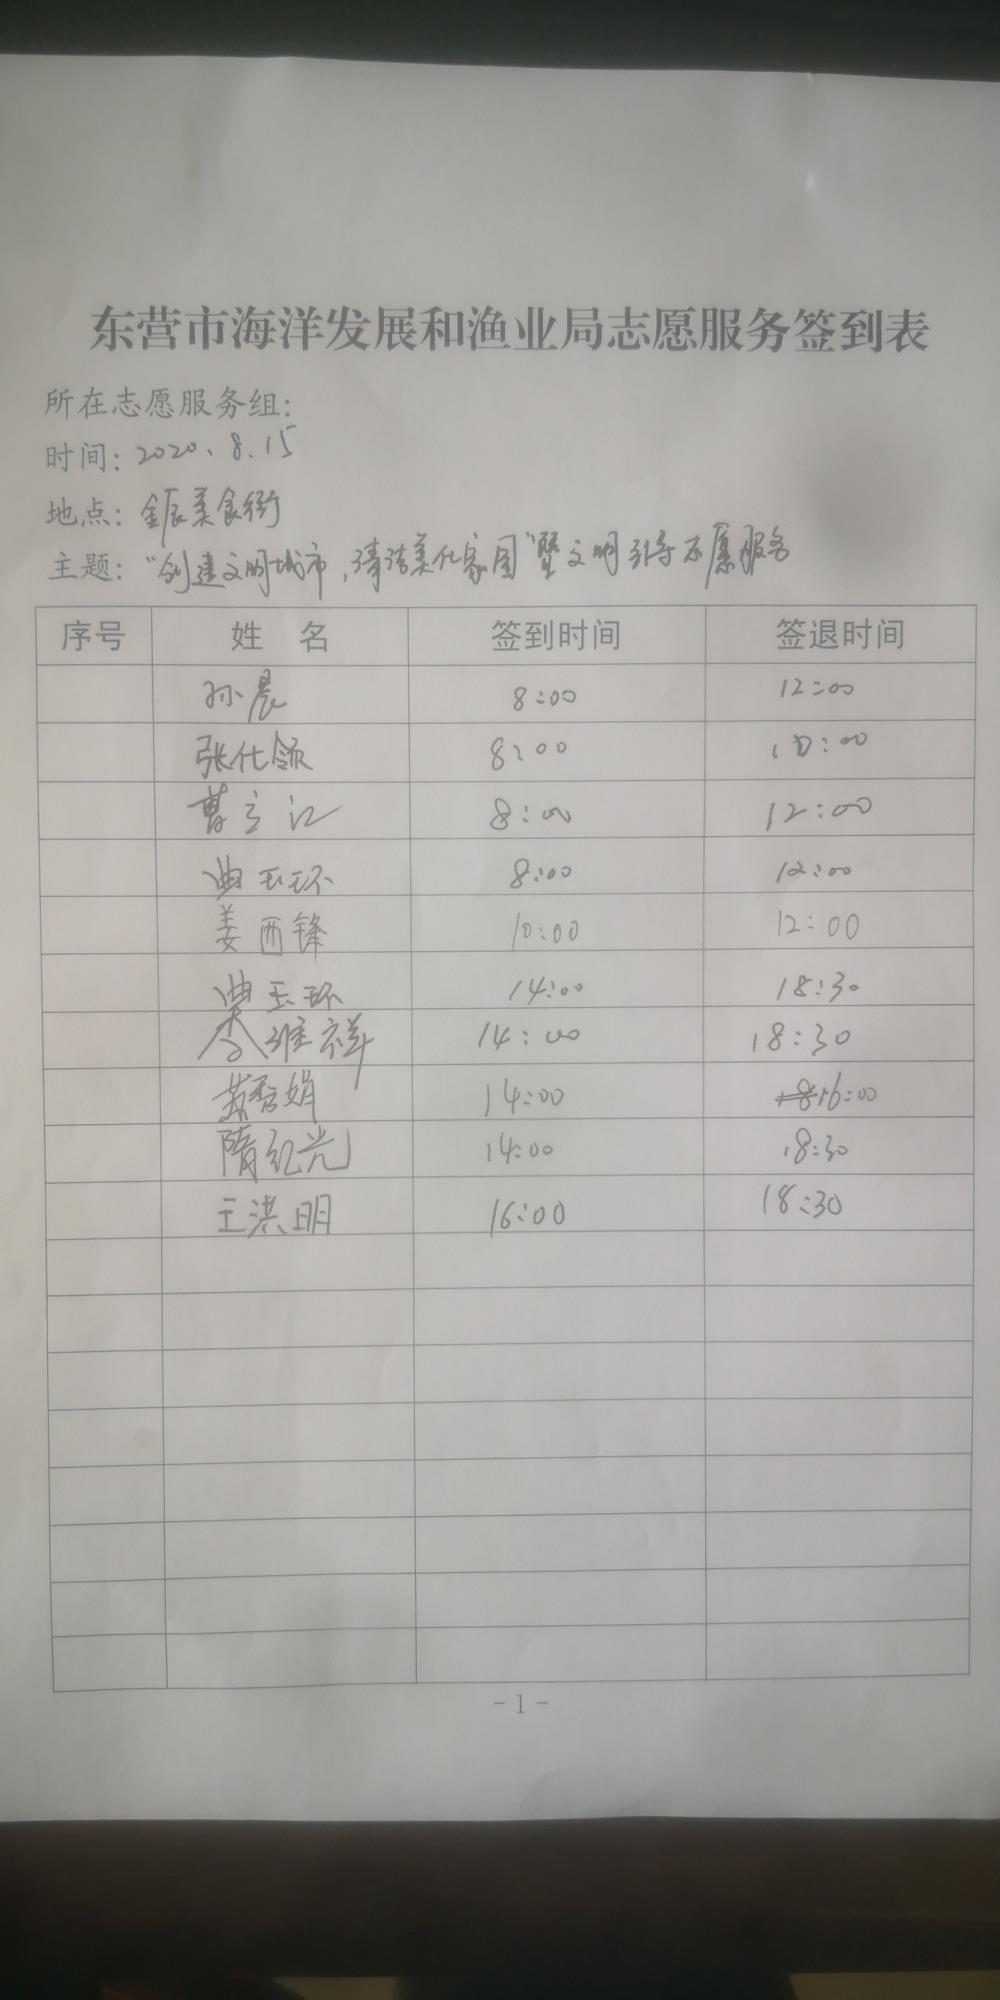 东营市海洋发展和渔业局志愿服务签到表
所在志愿服务组：
时间：2020、8.15
地点：金辰美食街
主题："创建文明城市，清洁美化家园"暨文明引导志愿服务
序号 姓 名 签到时间 签退时间
孙晨 8:00 12:00
张仕领 8:00 10:00
曹立江 8:00 12:00
曲玉环 8:00 12:00
姜西锋 10:00 12:00
曲玉环 14:00 18:30
李维祥 14:00 18:30
苏秀娟 14:00 16:00
隋红光 14:00 18:30
王洪明 16:00 18:30
- 1 -